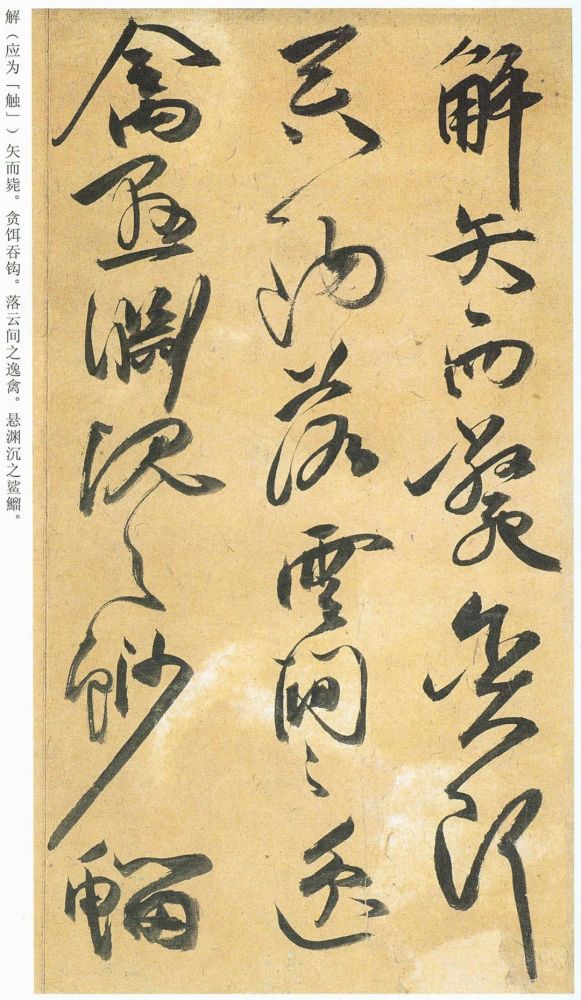 解矢而斃貪餌
吞鈎落雲間之逸
禽懸淵沉之魦鰡
解（应为「触」）矢而毙。贪饵吞钩。落云间之逸禽。悬渊沉之鲨鰡。